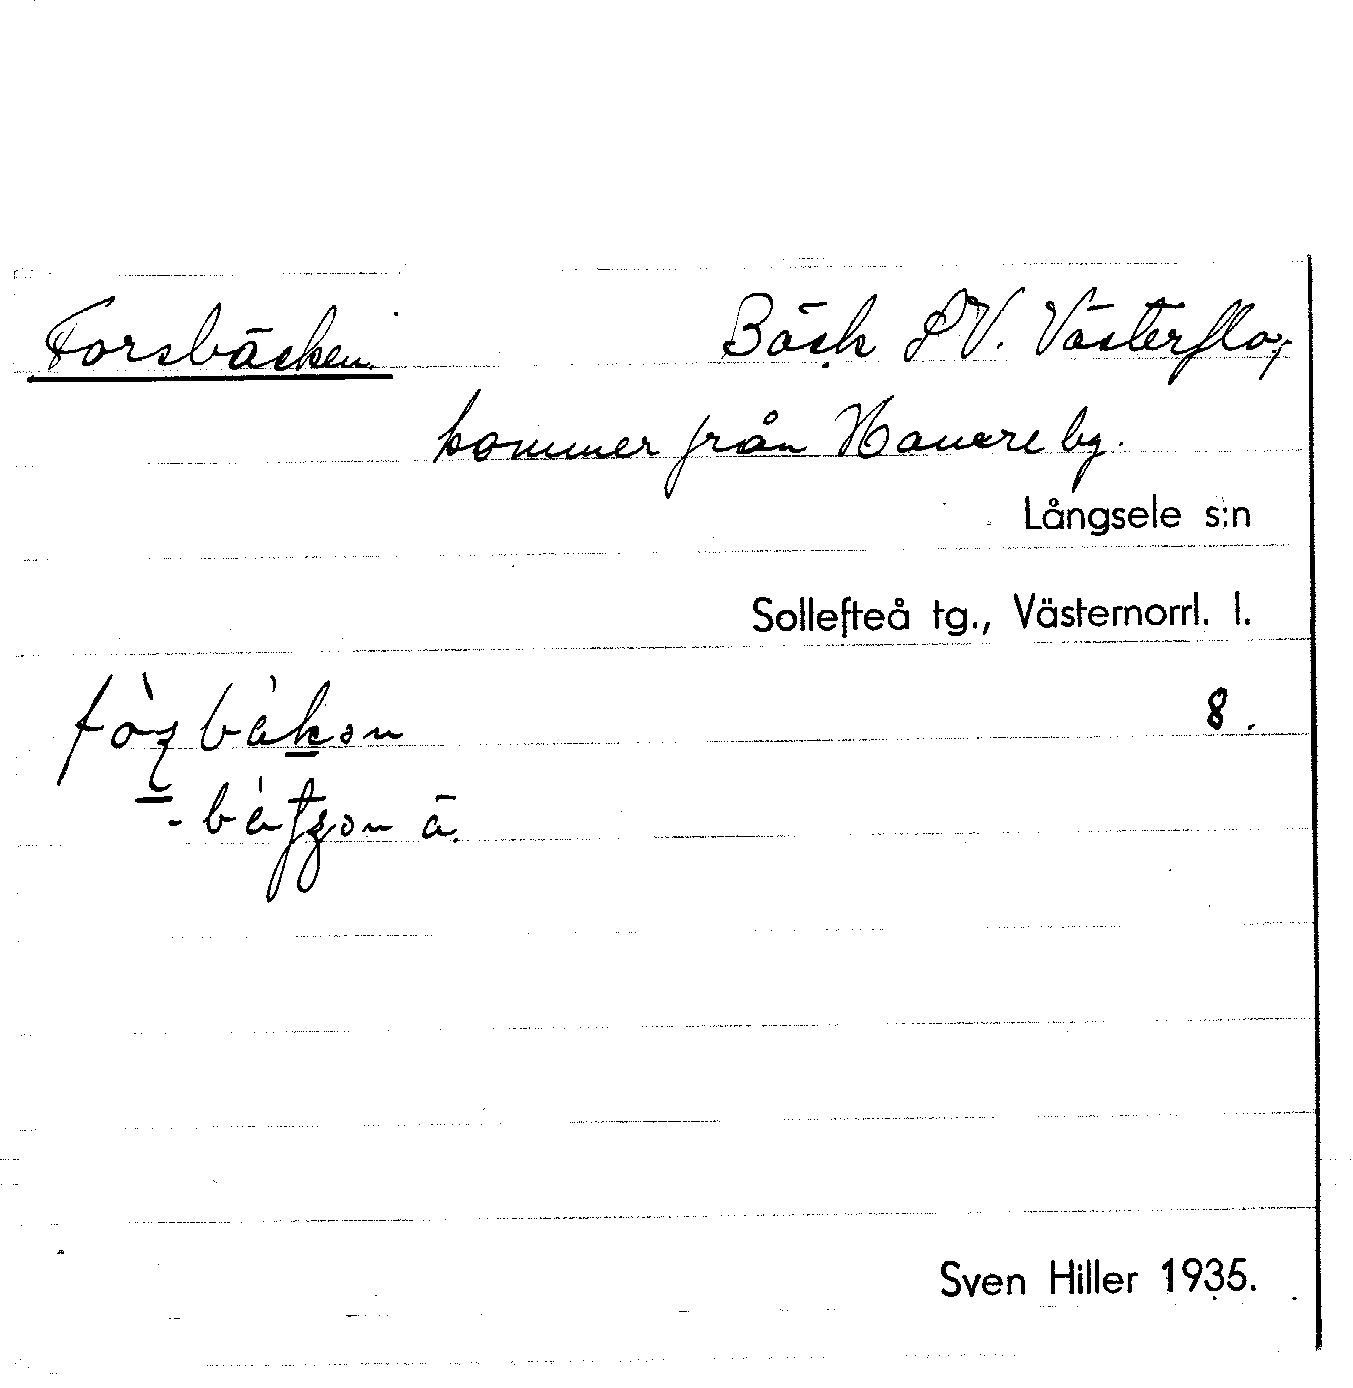 Forsbäcken. Bäck SV. Västerflo,
kommer från Hamre by.
Långsele s:n
Sollefteå tg., Västernorrl. l.
8.
ä.
Sven Hiller 1935.